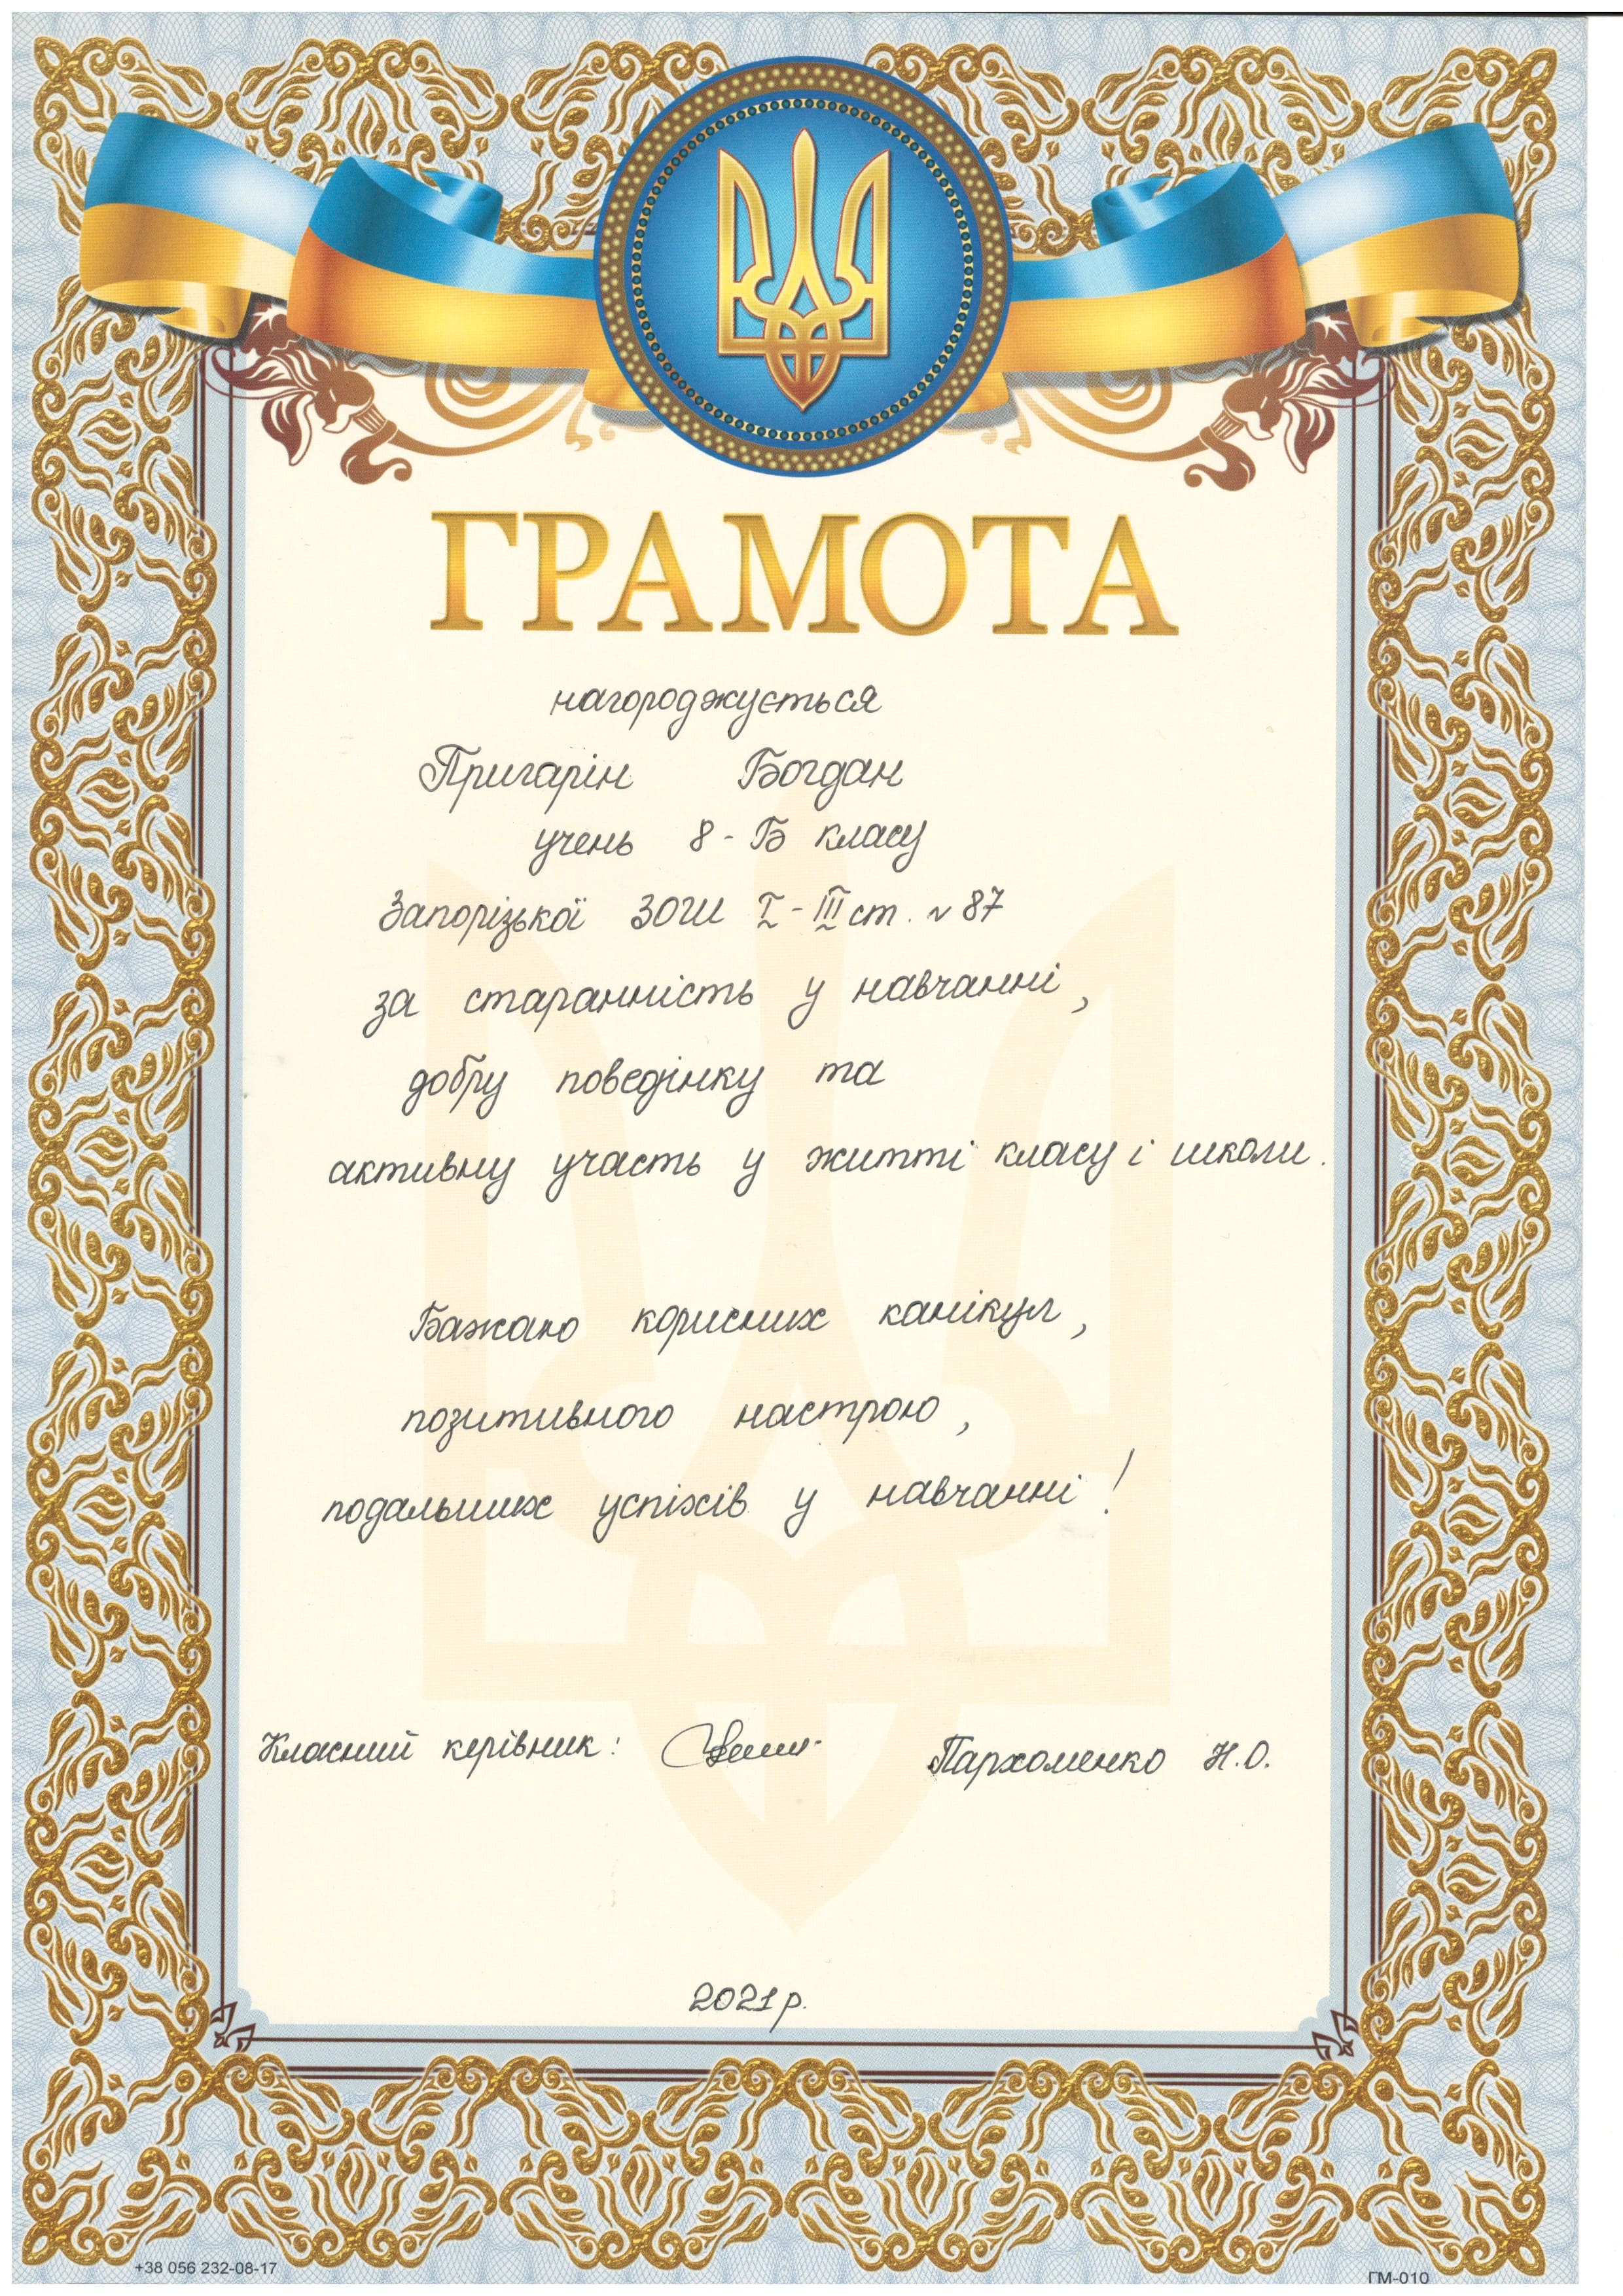 ГРАМОТА
нагороджується
Пригарін Богдан
учень 8-Б класу
Запорізької ЗОШ I-III ст. №87
за старанність у навчанні,
добру поведінку та
активну участь у житті класу і школи.
Бажаю корисних канікул,
позитивного настрою,
подальших успіхів у навчанні!
Класний керівник: Пархоменко Н.О.
2021р.
+38 056 232-08-17 ГМ-010